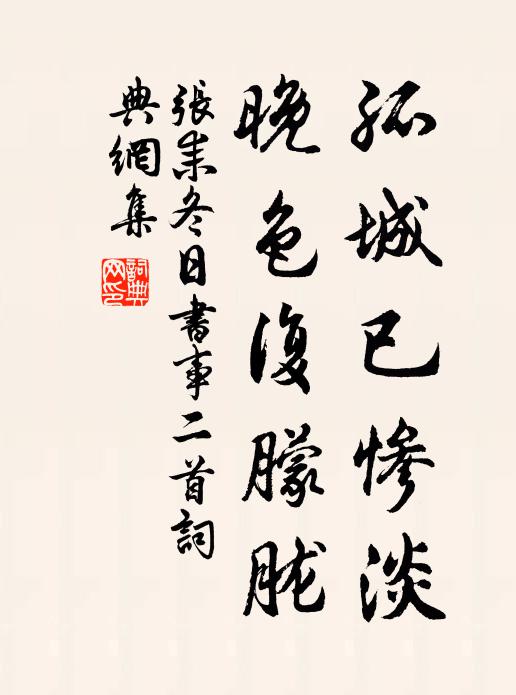 孤城已慘淡
晚色復朦朧
張耒冬日書事二首詞
典網集
詞典
网印